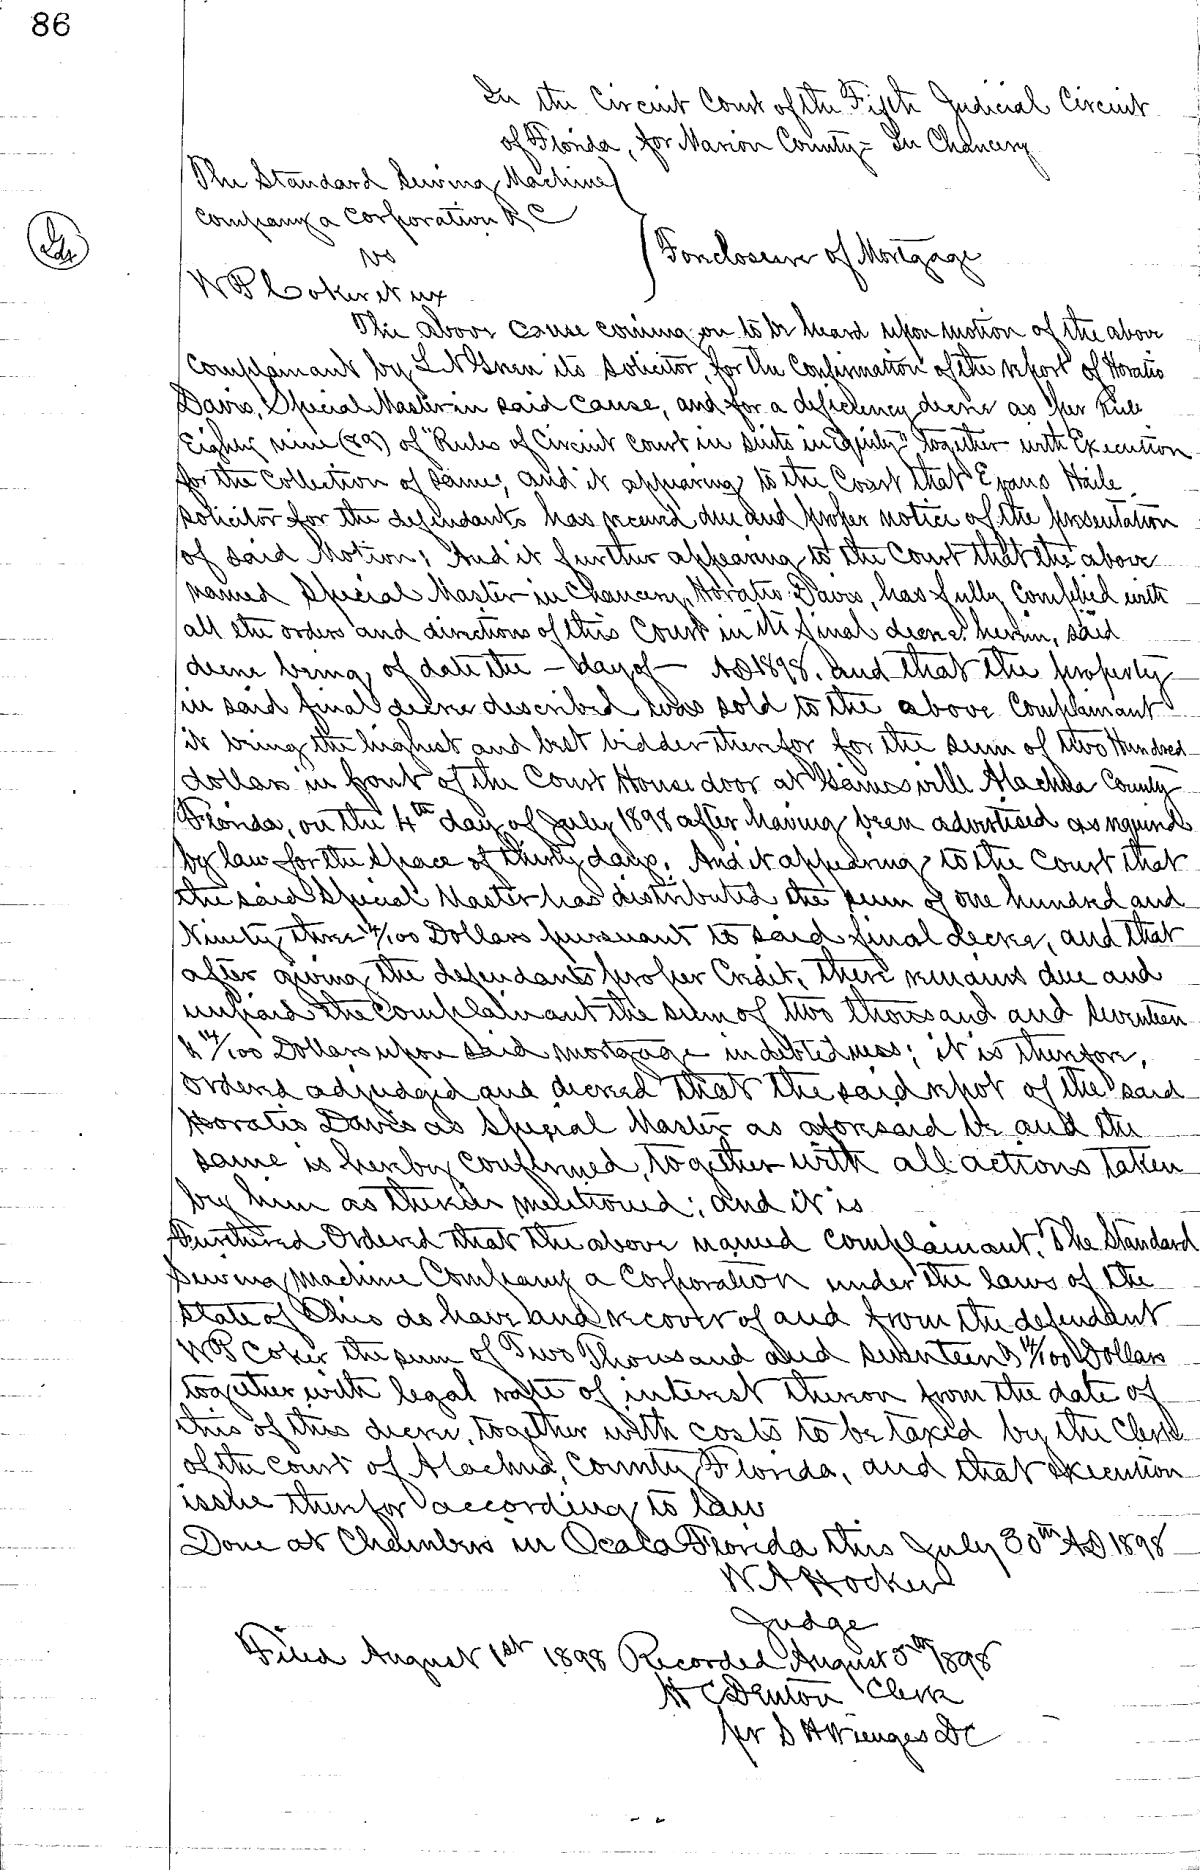 86
In the Circuit Court of the Fifth Judicial Circuit
of Florida, for Marion County = In Chancery
The Standard Sewing Machine
Company a Corporation &C
vs
W P Coker et ux
Foreclosure of Mortgage
The above cause coming on to be heard upon motion of the above
Complainant by L N Green its solicitor, for the Confirmation of the report of Horatio
Davis, Special Master in said cause, and for a deficiency decree as per Rule
Eighty nine (89) of "Rules of Circuit Court in suits in Equity" together with Execution
for the Collection of same, and it appearing to the Court that Evans Haile
solicitor for the defendants has received due and proper notice of the presentation
of said Motion; And it further appearing to the Court that the above
named Special Master in Chancery, Horatio Davis, has fully Complied with
all the orders and directions of this Court in its final decree herein, said
decree being of date the - day of - AD 1898, and that the property
in said final decree described was sold to the above Complainant
it being the highest and best bidder therefor for the sum of two Hundred
dollars in front of the Court House door at Gainesville Alachua County
Florida, on the 4th day of July 1898 after having been advertised as required
by law for the space of thirty days. And it appearing to the Court that
the said Special Master has distributed the sum of one hundred and
Ninety three /100 Dollars pursuant to said final decree, and that
after giving the defendants proper Credit, there remains due and
unpaid the Complainant the sum of two thousand and seventeen
& /100 Dollars upon said mortgage indebtedness; it is therefore,
Ordered adjudged and decreed that the said repot of the said
Horatio Davis as Special Master as aforesaid be and the
same is hereby confirmed, together with all actions taken
by him as therein mentioned; and it is
Furthered Ordered that the above named complainant, The Standard
Sewing Machine Company a Corporation under the laws of the
State of Ohio do have and recover of and from the defendant
W P Coker the sum of Two Thousand and seventeen & /100 Dollars
together with legal rate of interest thereon from the date of
this of this decree, together with costs to be taxed by the Clerk
of the court of Alachua, County Florida, and that execution
issue therefor according to law
Done at Chambers in Ocala Florida this July 30th AD 1898
W A Hocker
Judge
Filed August 1st 1898 Recorded August 5th 1898
H C Denton Clerk
per S H Wienges DC